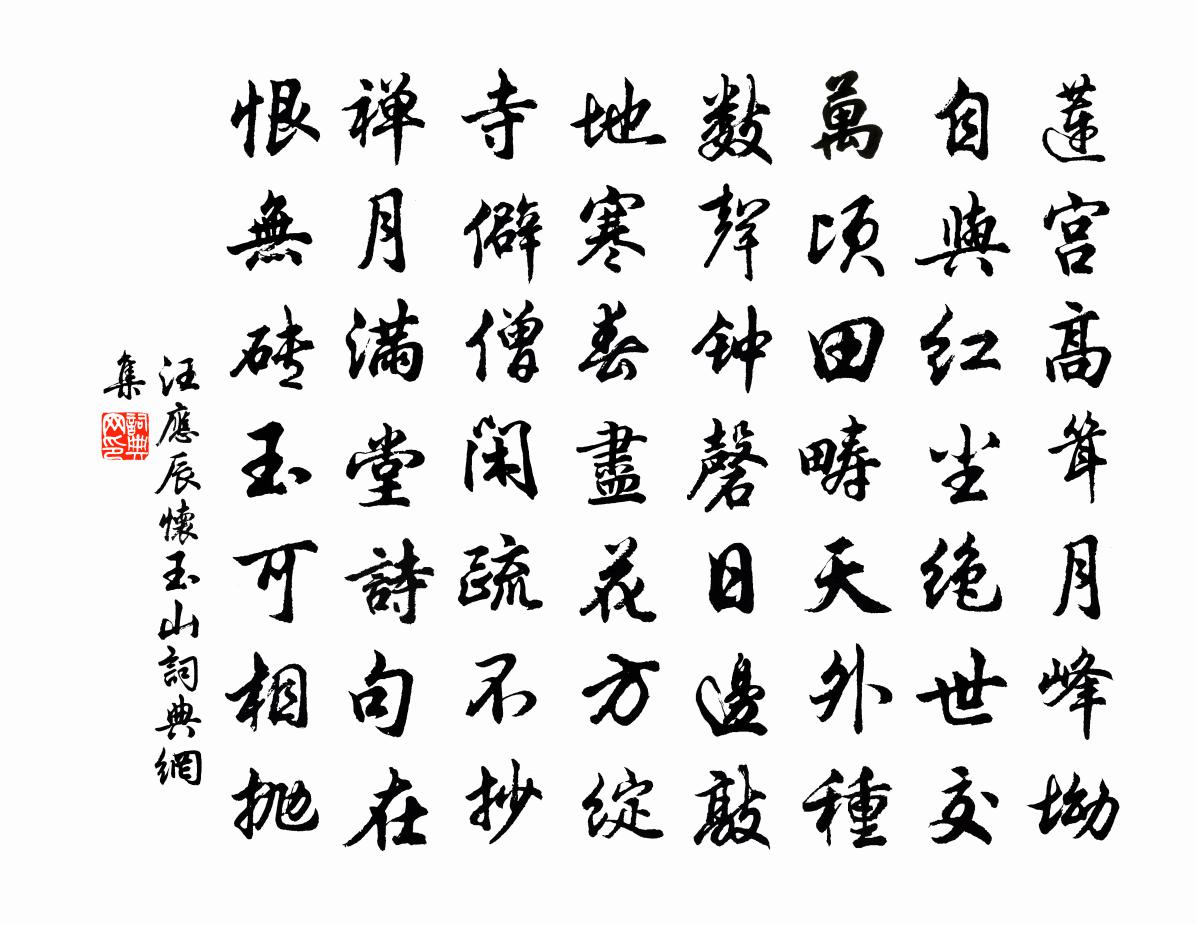 蓮宫高耸月峰坳
自與红尘绝世交
萬頃田疇天外種
數聲钟磬日邊敲
地寒春盡花方綻
寺僻僧闲疏不抄
禅月滿堂詩句在
恨無磚玉可相抛
汪應辰懷玉山詞典網
集
詞典网印